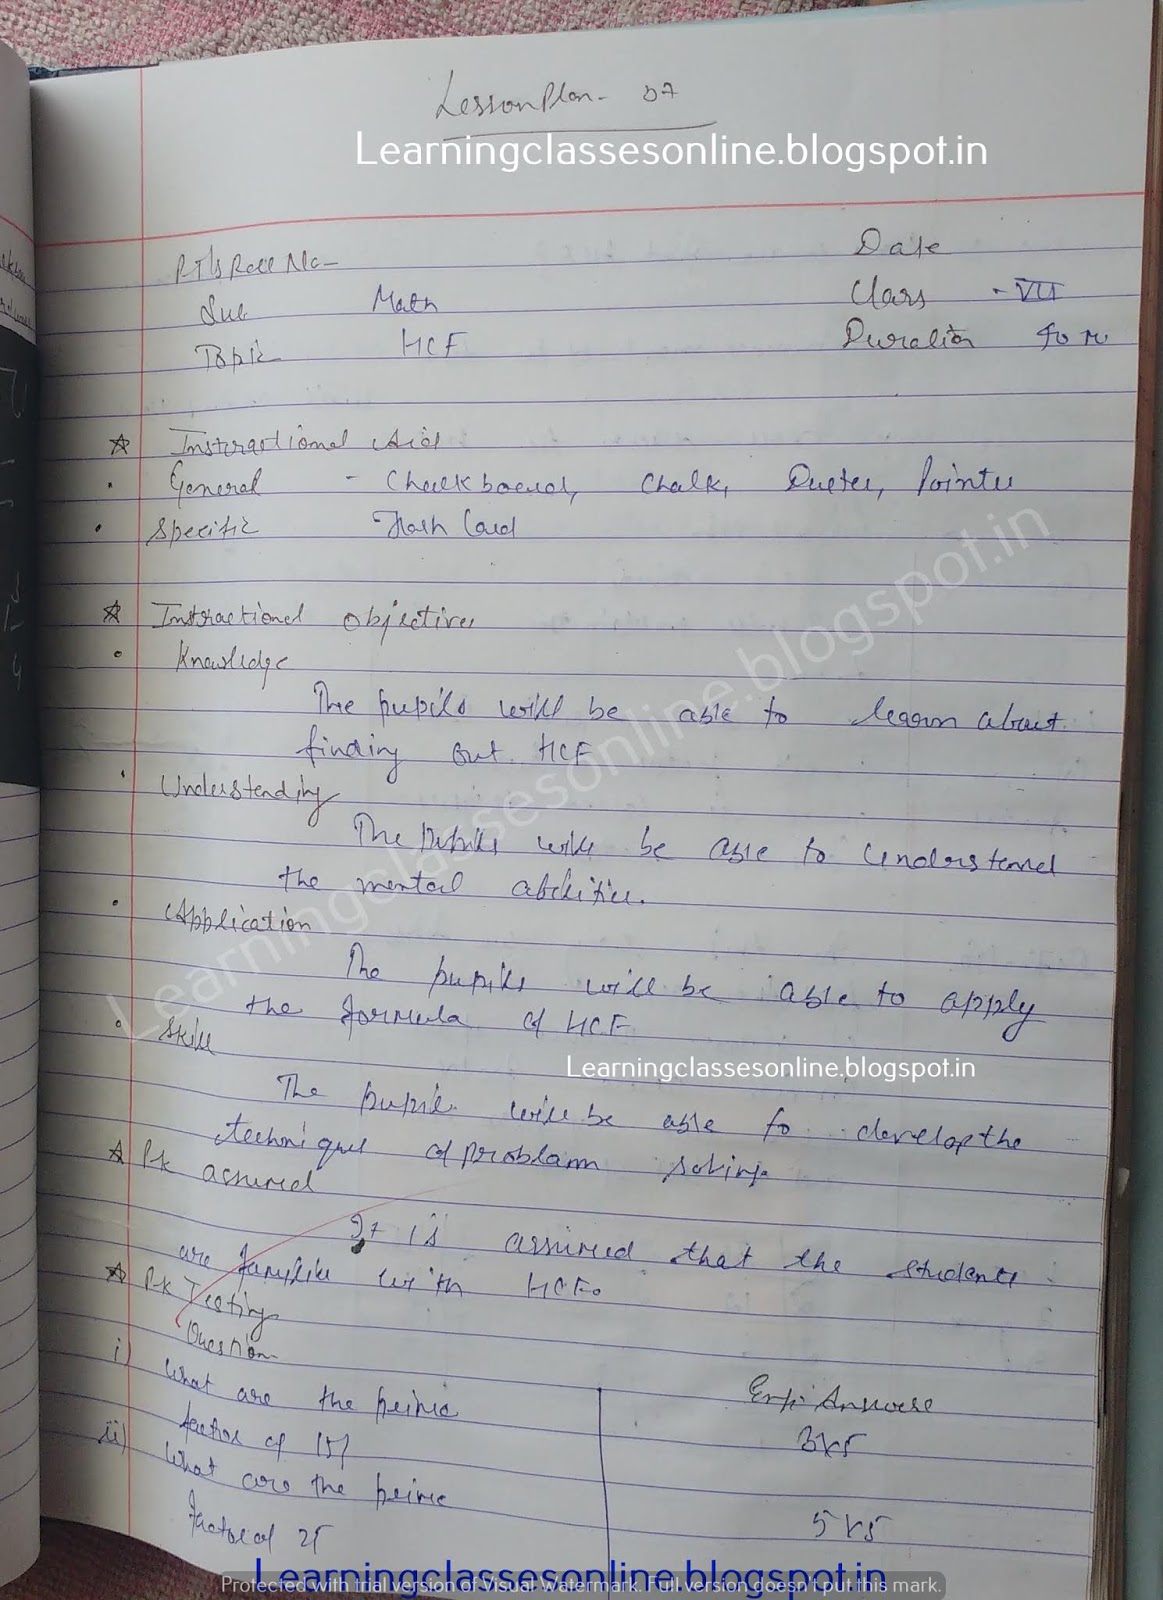 Lesson Plan - 07
Learningclassesonline.blogspot.in
P.T's Roll No - Date
Sub Math Class - VII
Topic HCF Duration 40 m
☆ Instructional Aid
· General - Chalkboard, Chalk, Duster, Pointer
· Specific Flash Card
☆ Instructional Objectives
· Knowledge
The pupils will be able to learn about
finding out HCF
· Understanding
The pupils will be able to understand
the mental abilities.
· Application
The pupils will be able to apply
the formula of HCF
· Skill
Learningclassesonline.blogspot.in
The pupil will be able to develop the
techniques of problam solving
☆ Pk assumed
It is assumed that the students
are with HCF.
☆ Pk Testing
Question Exp. Answere
i) What are the prime
factors of 15? 3x5
ii) What are the prime
factor of 25 5x5
Learningclassesonline.blogspot.in
Learningclassesonline.blogspot.in
Protected with trial version of Visual Watermark. Full version doesn't put this mark.